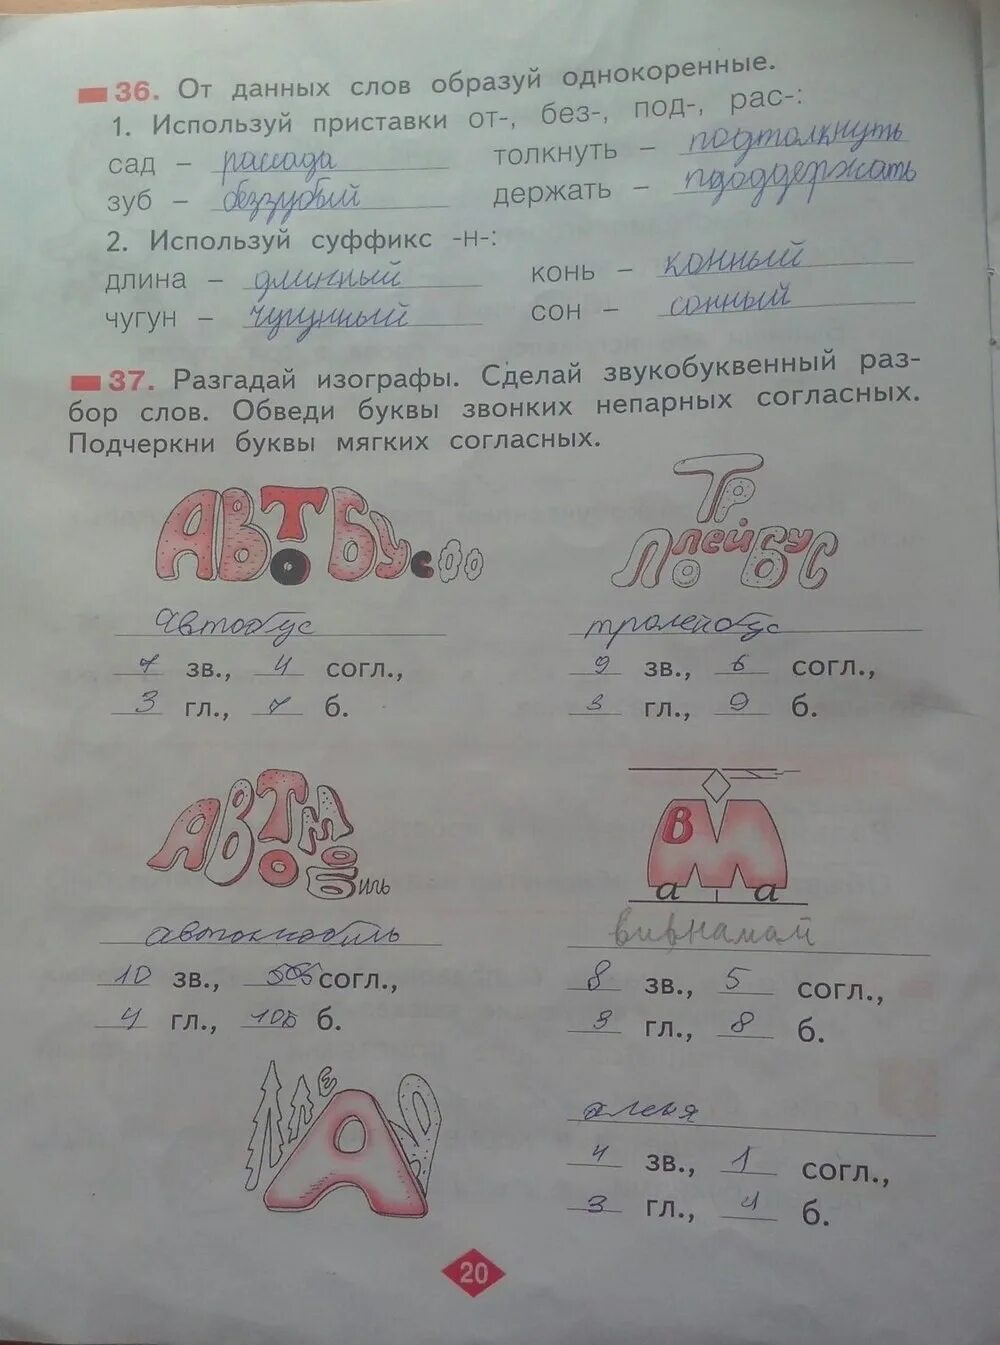 36. От данных слов образуй однокоренные.
1. Используй приставки от-, без-, под-, рас-:
сад – рассада толкнуть – подтолкнуть
зуб – беззубый держать – пододдержать
2. Используй суффикс -н-:
длина – длинный конь – конный
чугун – чугунный сон – сонный
37. Разгадай изографы. Сделай звукобуквенный раз-
бор слов. Обведи буквы звонких непарных согласных.
Подчеркни буквы мягких согласных.
АВТОБУС ТРОЛЛЕЙБУС
автобус тролейбус
7 зв., 4 согл., 9 зв., 6 согл.,
3 гл., 7 б. 3 гл., 9 б.
АВТОМОБиль В М а а
автомобиль
10 зв., согл., 8 зв., 5 согл.,
4 гл., б. 3 гл., 8 б.
АЛЛЕЯ
алея
4 зв., 1 согл.,
3 гл., 4 б.
20